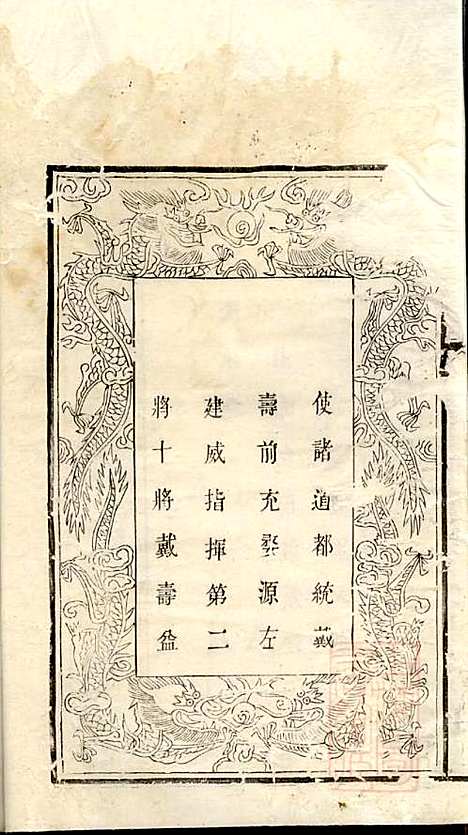 使諸道都統戴
壽前充婺源左
建威指揮第二
將十將戴壽益